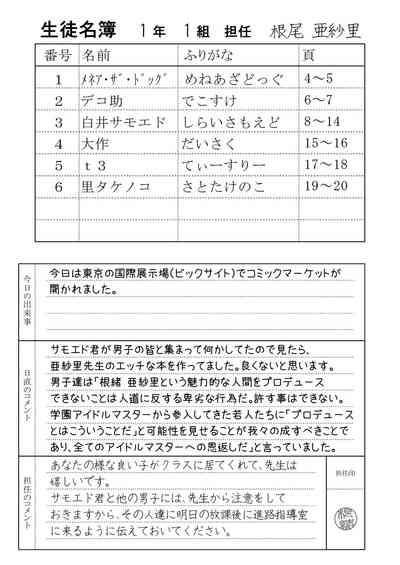 生徒名簿 1年 1組 担任 根尾 亜紗里
番号 名前 ふりがな 頁
1 ﾒﾈｱ・ｻﾞ・ﾄﾞｯｸﾞ めねあざどっぐ 4～5
2 デコ助 でこすけ 6～7
3 白井サモエド しらいさもえど 8～14
4 大作 だいさく 15～16
5 t3 てぃーすりー 17～18
6 里タケノコ さとたけのこ 19～20
今日の出来事
今日は東京の国際展示場(ビックサイト)でコミックマーケットが
開かれました。
日直のコメント
サモエド君が男子の皆と集まって何かしてたので見たら、
亜紗里先生のエッチな本を作ってました。良くないと思います。
男子達は「根緒 亜紗里という魅力的な人間をプロデュース
できないことは人道に反する卑劣な行為だ。許す事はできない。
学園アイドルマスターから参入してきた若人たちに「プロデュース
とはこういうことだ」と可能性を見せることが我々の成すべきことで
あり、全てのアイドルマスターへの恩返しだ」と言っていました。
担任のコメント
あなたの様な良い子がクラスに居てくれて、先生は
嬉しいです。
サモエド君と他の男子には、先生から注意をして
おきますから、その人達に明日の放課後に進路指導室
に来るように伝えておいてください。
担任印